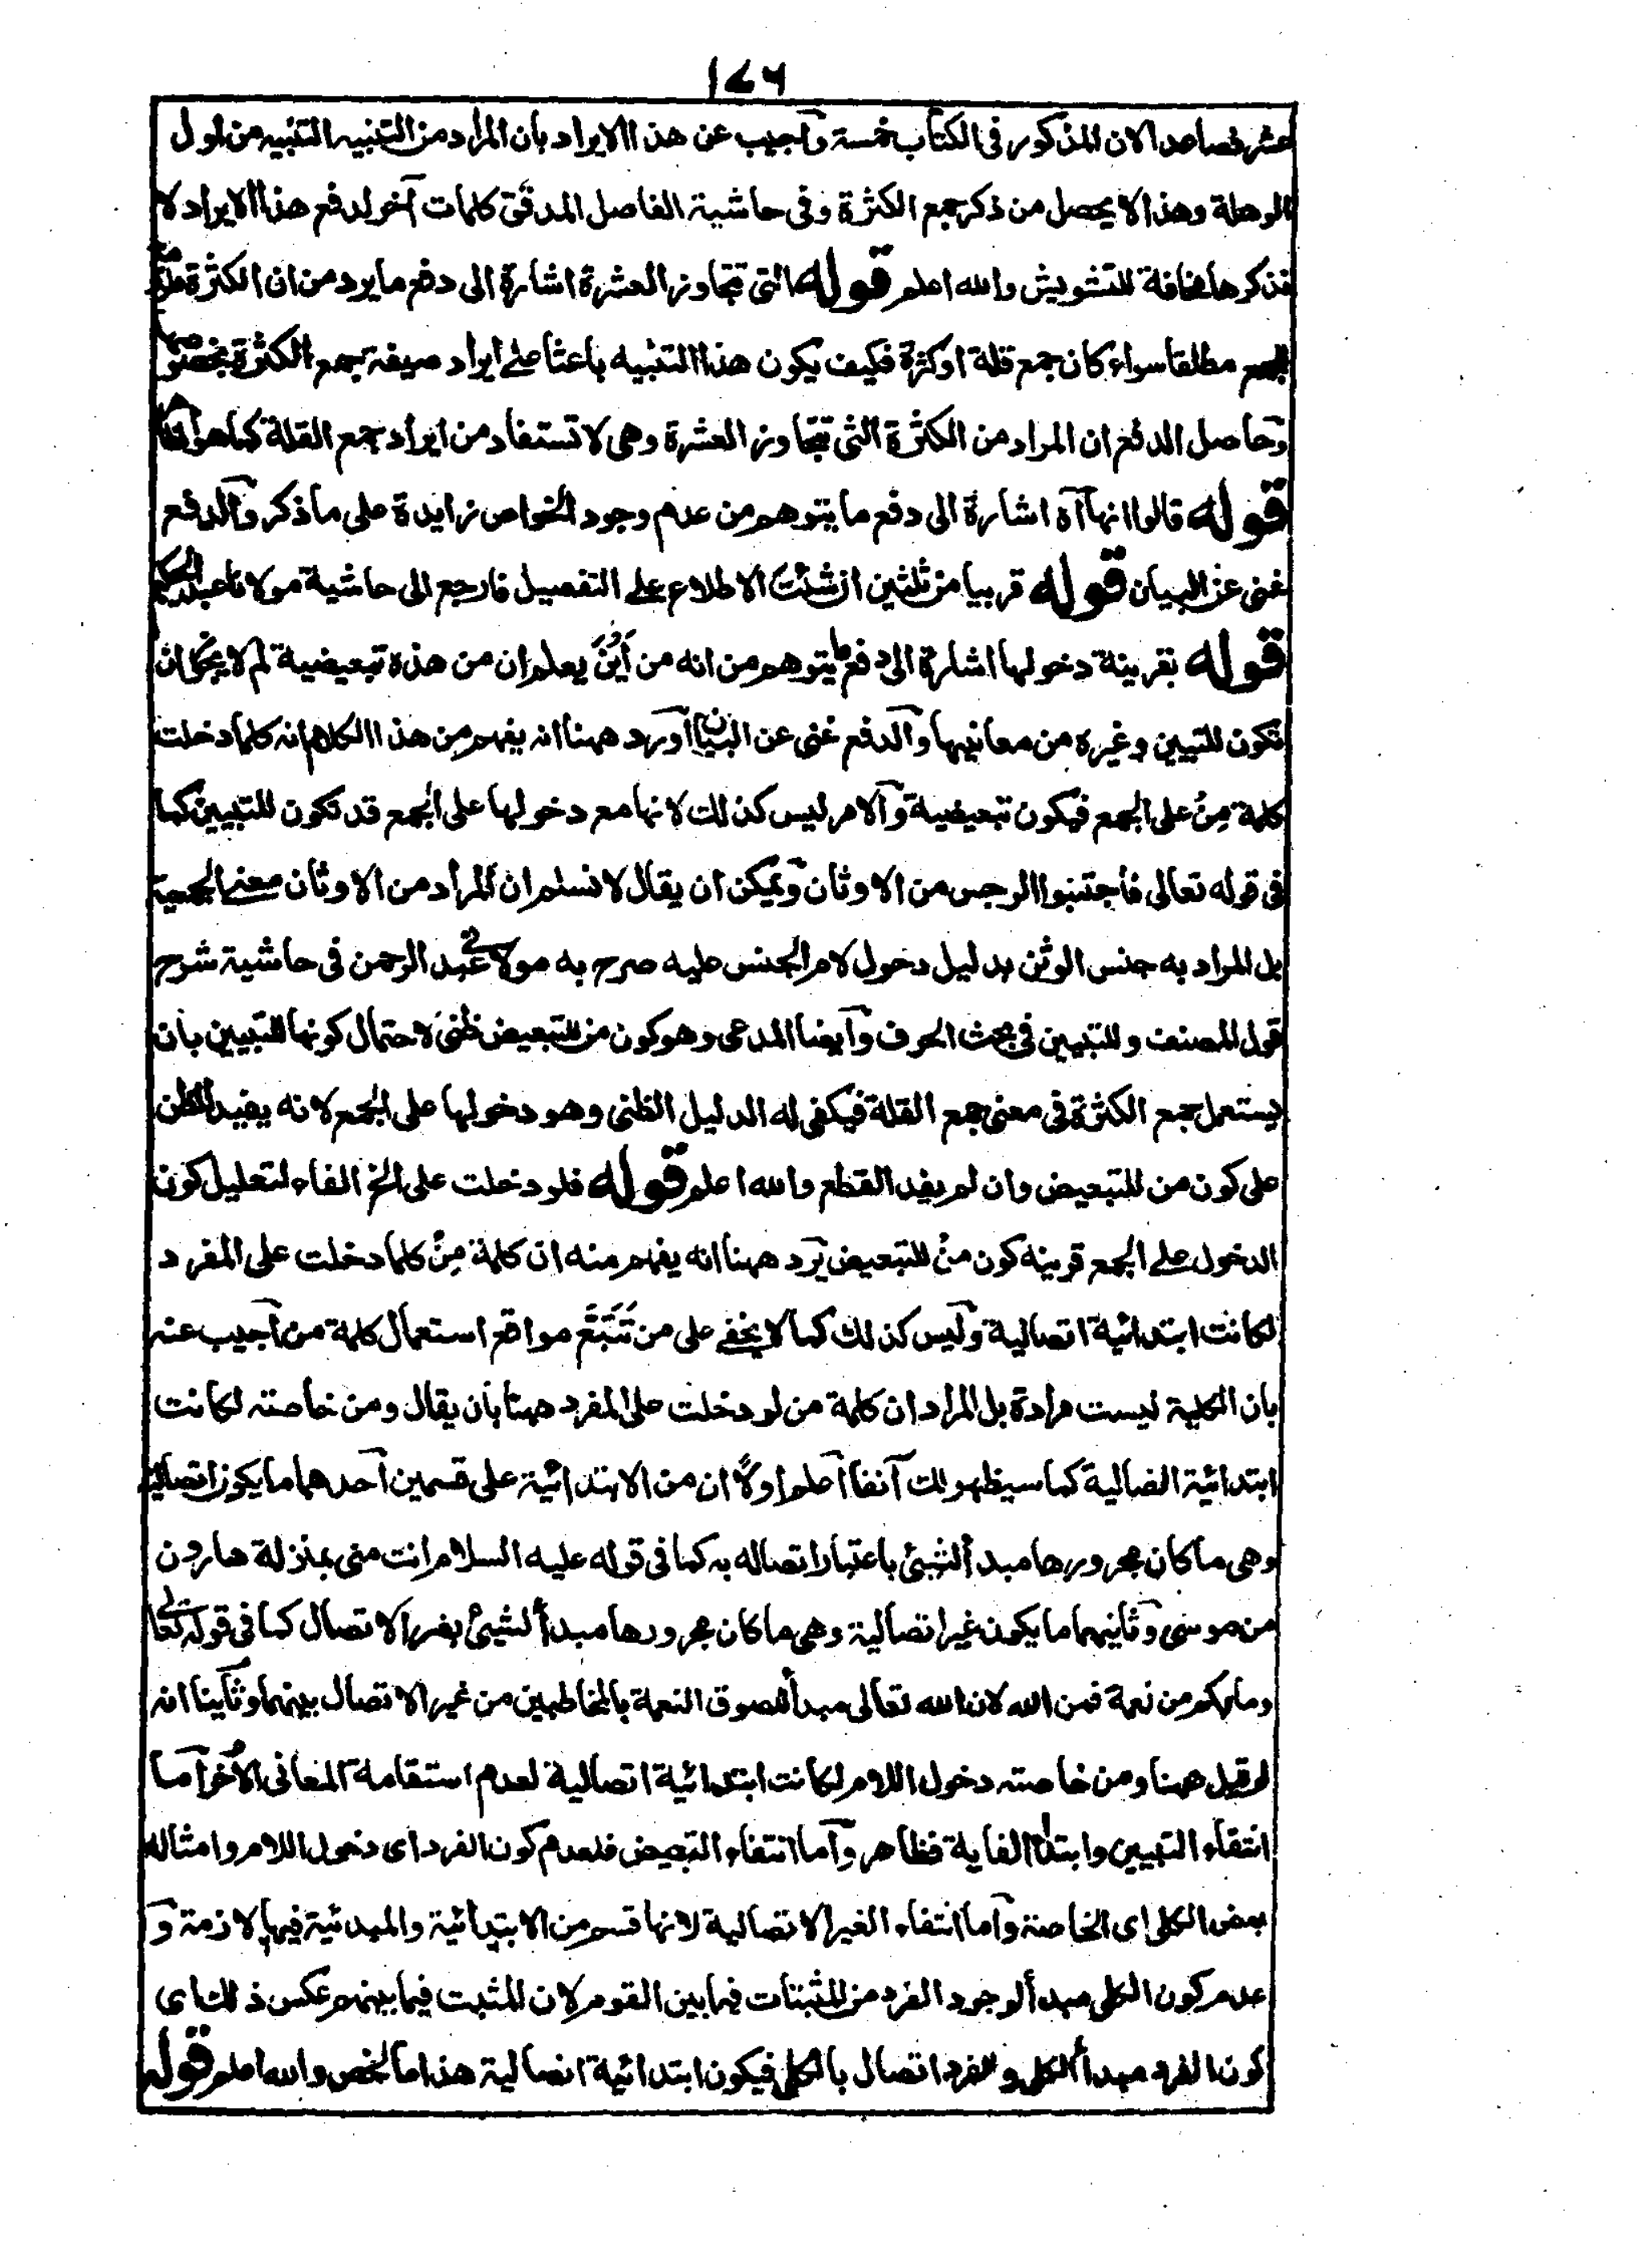 ١٧٦
عشر فصاعدا لان المذكور فى الكتاب خمسة وآجيب عن هذا الايراد بان المراد من التنبيه التنبيه من اول
الوهلة وهذا لا يحصل من ذكر جمع الكثرة وفى حاشية الفاضل المدقق كلمات آخر لدفع هذا الايراد لا
نذكرها مخافة للتشويش والله اعلم قوله التى تتجاوز العشرة اشارة الى دفع ما يرد من ان الكثرة
الجمع مطلقا سواء كان جمع قلة او كثرة فكيف يكون هذا التنبيه باعثا على ايراد صيغة جمع الكثرة بخصوصها
وحاصل الدفع ان المراد من الكثرة التى تتجاوز العشرة وهى لا تستفاد من ايراد جمع القلة كما هو
قوله قالوا انها آه اشارة الى دفع ما يتوهم من عدم وجود الخواص زايدة على ما ذكر وآلدفع
غنى عن البيان قوله قريبا من ثلثين ان شئت الاطلاع على التفصيل فارجع الى حاشية مولانا عبد الحكيم
قوله بقرينة دخولها اشارة الى دفع ما يتوهم من انه من اَيْنَ يعلم ان من هذه تبعيضية لم لا يجوز ان
تكون للتبيين وغيره من معانيها وآلدفع غنى عن البيان آورد ههنا انه يفهم من هذا الكلام انه كلما دخلت
كلمة مِنْ على الجمع فيكون تبعيضية وآلامر ليس كذلك لانها مع دخولها على الجمع قد تكون للتبيين كما
فى قوله تعالى فاجتنبوا الرجس من الاوثان ويمكن ان يقال لا نسلم ان المراد من الاوثان معنى الجمعية
بل المراد به جنس الوثن بدليل دخول لام الجنس عليه صرح به مولانا عبد الرحمن فى حاشية شرح
قول المصنف وللتبيين فى بحث الحرف وآيضا المدعى وهو كون من للتبعيض ظنى لاحتمال كونها للتبيين بان
يستعمل جمع الكثرة فى معنى جمع القلة فيكفى له الدليل الظنى وهو دخولها على الجمع لانه يفيد الظن
على كون من للتبعيض وان لم يفد القطع والله اعلم قوله فلو دخلت على الخ الفاء لتعليل كون
الدخول على الجمع قرينه كون منْ للتبعيض يَرد ههنا انه يفهم منه ان كلمة مِنْ كلما دخلت على المفرد
لكانت ابتدائية اتصالية وليس كذلك كما لا يخفى على من تَتَبَّعَ مواقع استعمال كلمة من آجيب عنه
بان الكلية ليست مرادة بل المراد ان كلمة من لو دخلت على المفرد ههنا بان يقال ومن خاصته لكانت
ابتدائية اتصالية كما سيظهر لك آنفا آعلم اولًا ان من الابتدائية على قسمين آحدهما ما يكون اتصالية
وهى ما كان مجرورها مبدأ لشيئ باعتبار اتصاله به كما فى قوله عليه السلام انت منى بمنزلة هارون
من موسى وثانيهما ما يكون غير اتصالية وهى ما كان مجرورها مبدأ لشيئ بغير الاتصال كما فى قوله تعالى
وما بكم من نعمة فمن الله لان الله تعالى مبدأ للصوق النعمة بالمخاطبين من غير الاتصال بينهما وثآنيا انه
لو قيل ههنا ومن خاصته دخول اللام لكانت ابتدائية اتصالية لعدم استقامة المعانى الاُخر آما
انتفاء التبيين وابتداء الغاية فظاهر وآما انتفاء التبعيض فلعدم كون الفرد اى دخول اللام وامثاله
بعض الكلى اى الخاصة وآما انتفاء الغير الاتصالية لانها قسم من الابتدائية والمبدئية فيها لازمة و
عدم كون الكلى مبدأ لوجود الفرد من المثبتات فيما بين القوم لان المثبت فيما بينهم عكس ذلك اى
كون الفرد مبدأ للكلى وللفرد اتصال بالكلى فيكون ابتدائية اتصالية هذا ما لخص والله اعلم قوله